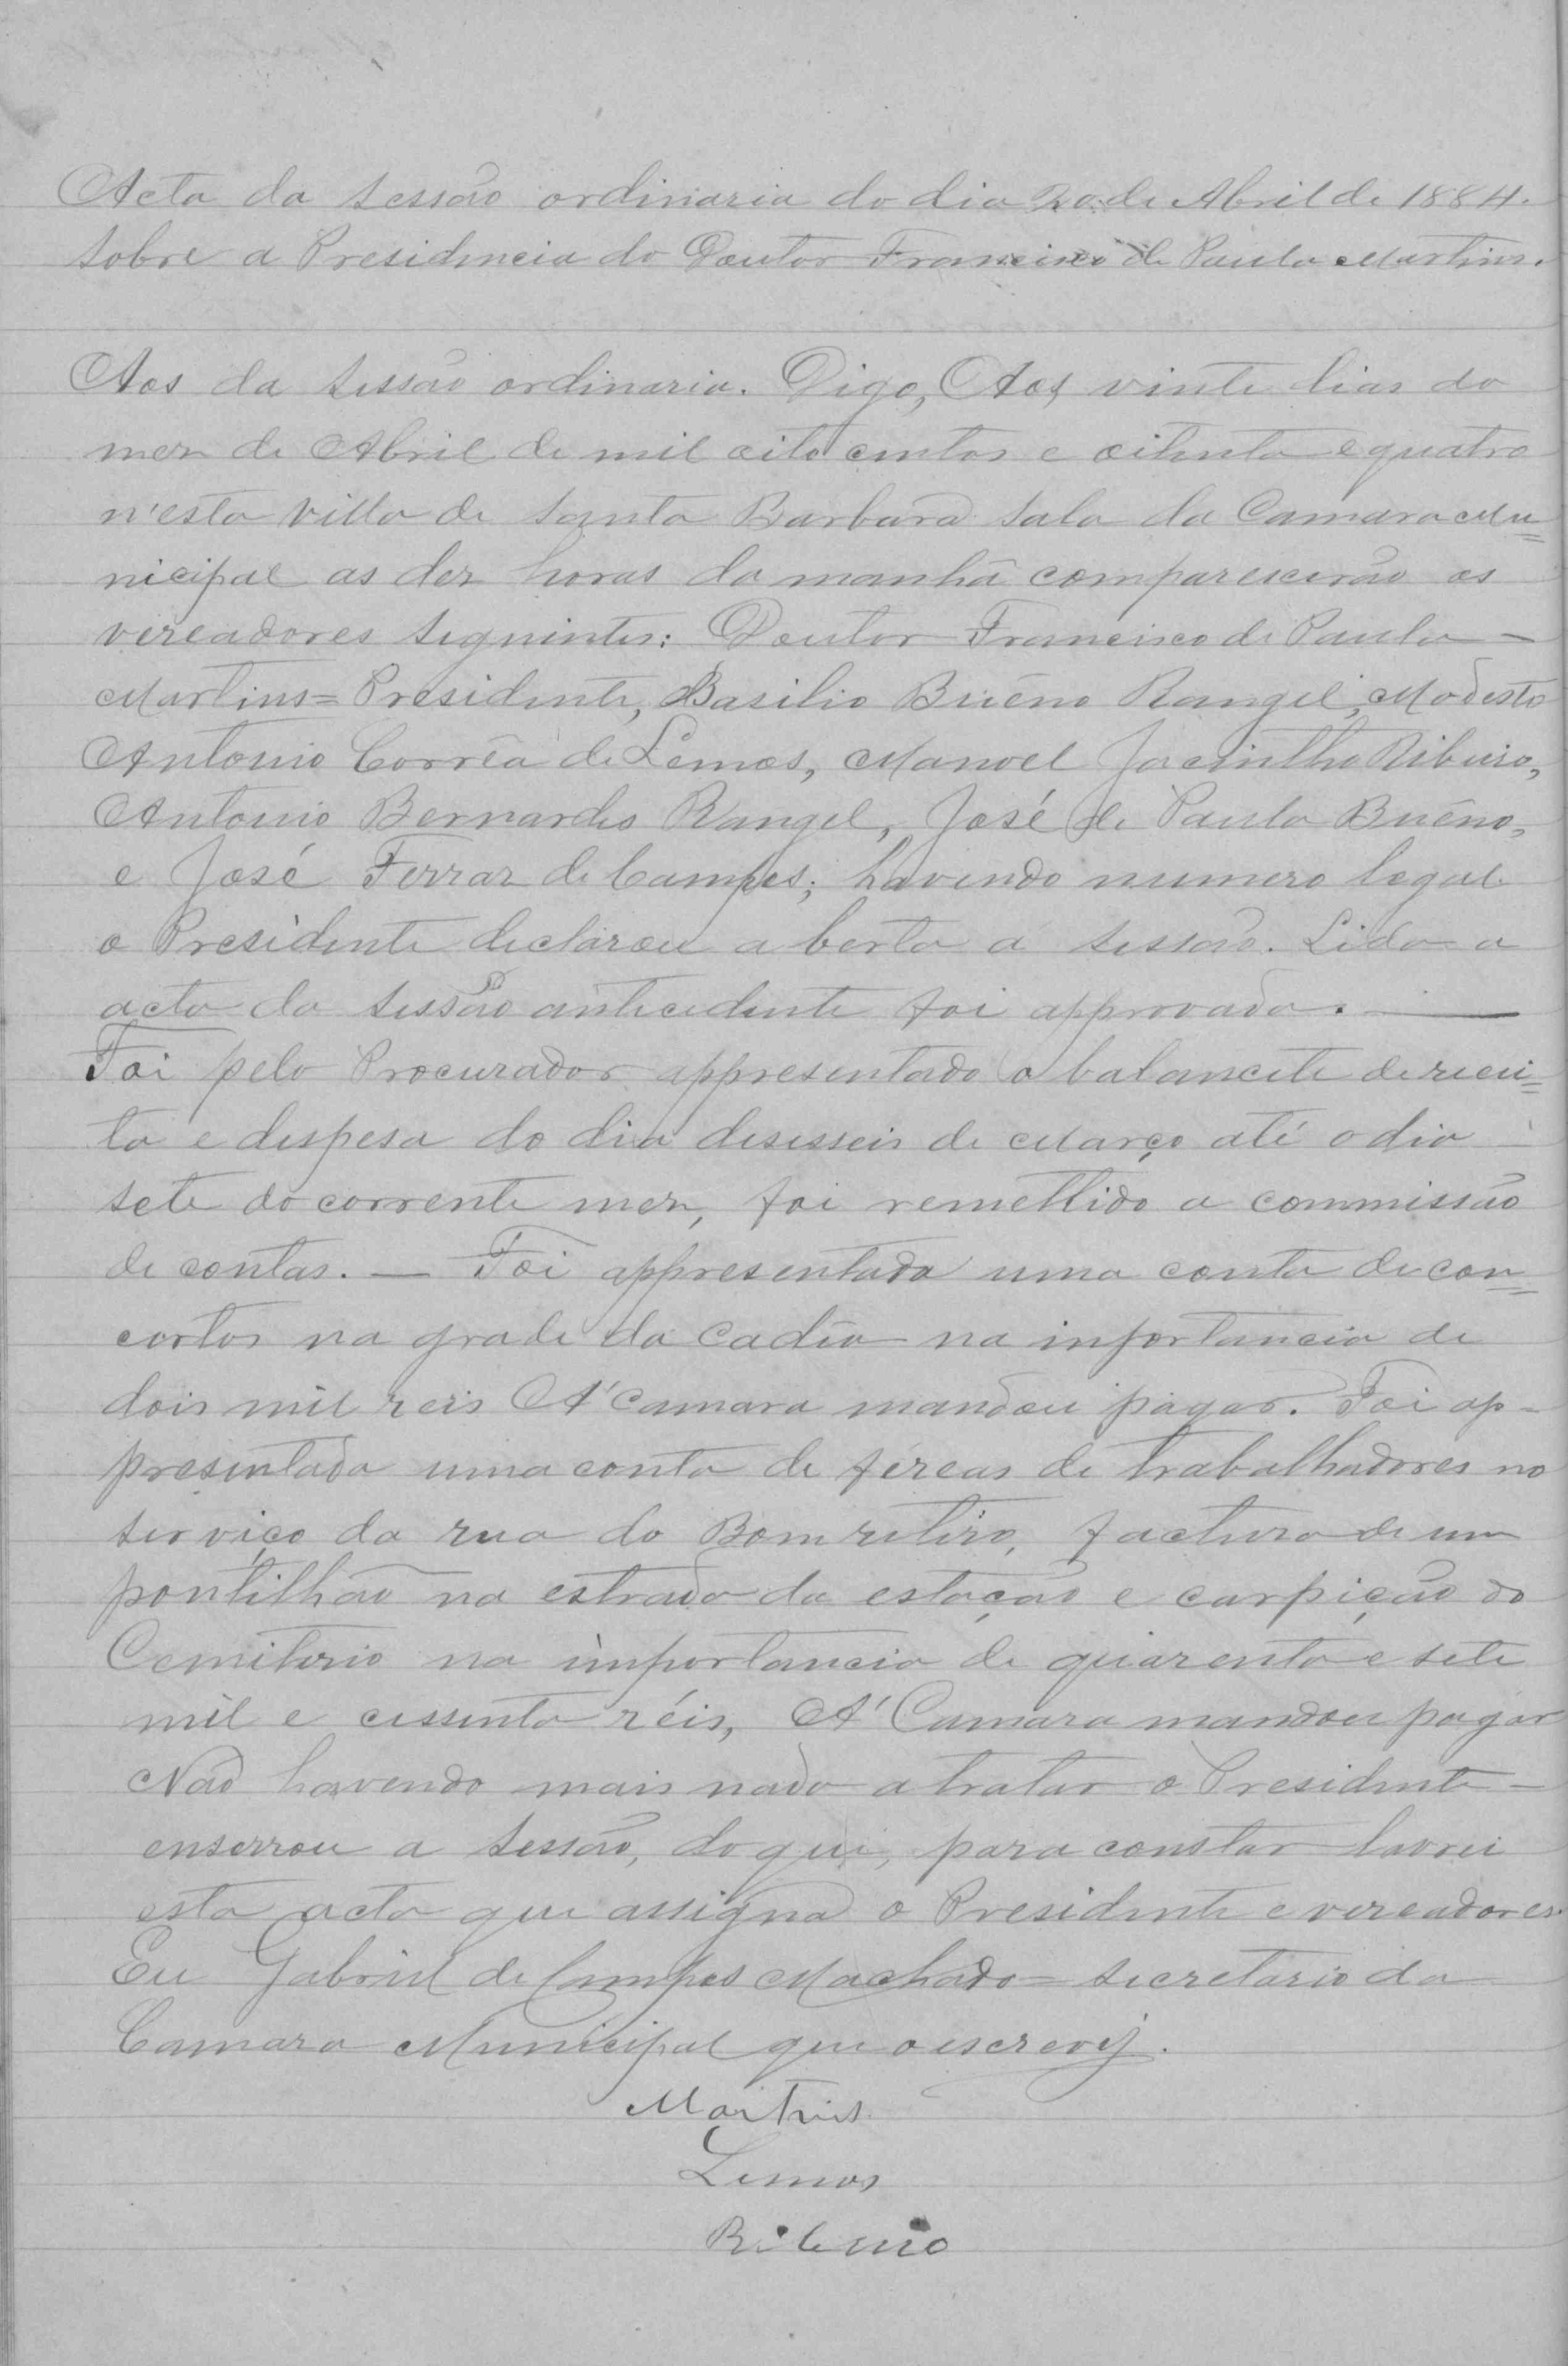 Acta da sessão ordinaria do dia 20 de Abril de 1884.
sobre a Presidencia do Doutor Francisco de Paula Martins.
Aos da sessão ordinaria. Digo, Aos vinte dias do
mez de Abril de mil oito centos e oitenta e quatro
n'esta villa de Santa Barbara sala da Camara Mu=
nicipal as dez horas da manhã comparescerão os
vereadores seguintes: Doutor Francisco de Paula —
Martins = Presidente, Basilio Buêno Rangel, Modesto
Antonio Corrêa de Lemos, Manoel Jacintho Ribeiro,
Antonio Bernardes Rangel, José de Paula Buêno,
e José Ferraz de Campos; havendo numero legal
o Presidente declarou a berta a sessão. Lida a
acta da sessão antecedente foi approvada. —
Foi pelo Procurador appresentado o balancete de recei=
ta e despesa do dia desesseis de Março até o dia
sete do corrente mez, foi remettido a commissão
de contas. — Foi appresentada uma conta de con=
certos na grade da Cadêa na inportancia de
dois mil reis A' Camara mandou pagar. Foi ap-
presentada uma conta de féreas de trabalhadores no
serviço da rua do Bom retiro, factura de um
pontilhão na estrada da estação e carpição do
Cemiterio na importancia de quarenta e sete
mil e cessenta réis, A' Camara mandou pagar
Não havendo mais nada a tratar o Presidente —
enserrou a sessão, do que, para constar lavrei
esta acta que assigna o Presidente e vereadores.
Eu Gabriel de Campos Machado = secretario da
Camara Municipal que o escrevy.
Martins
Lemos
Ribeiro